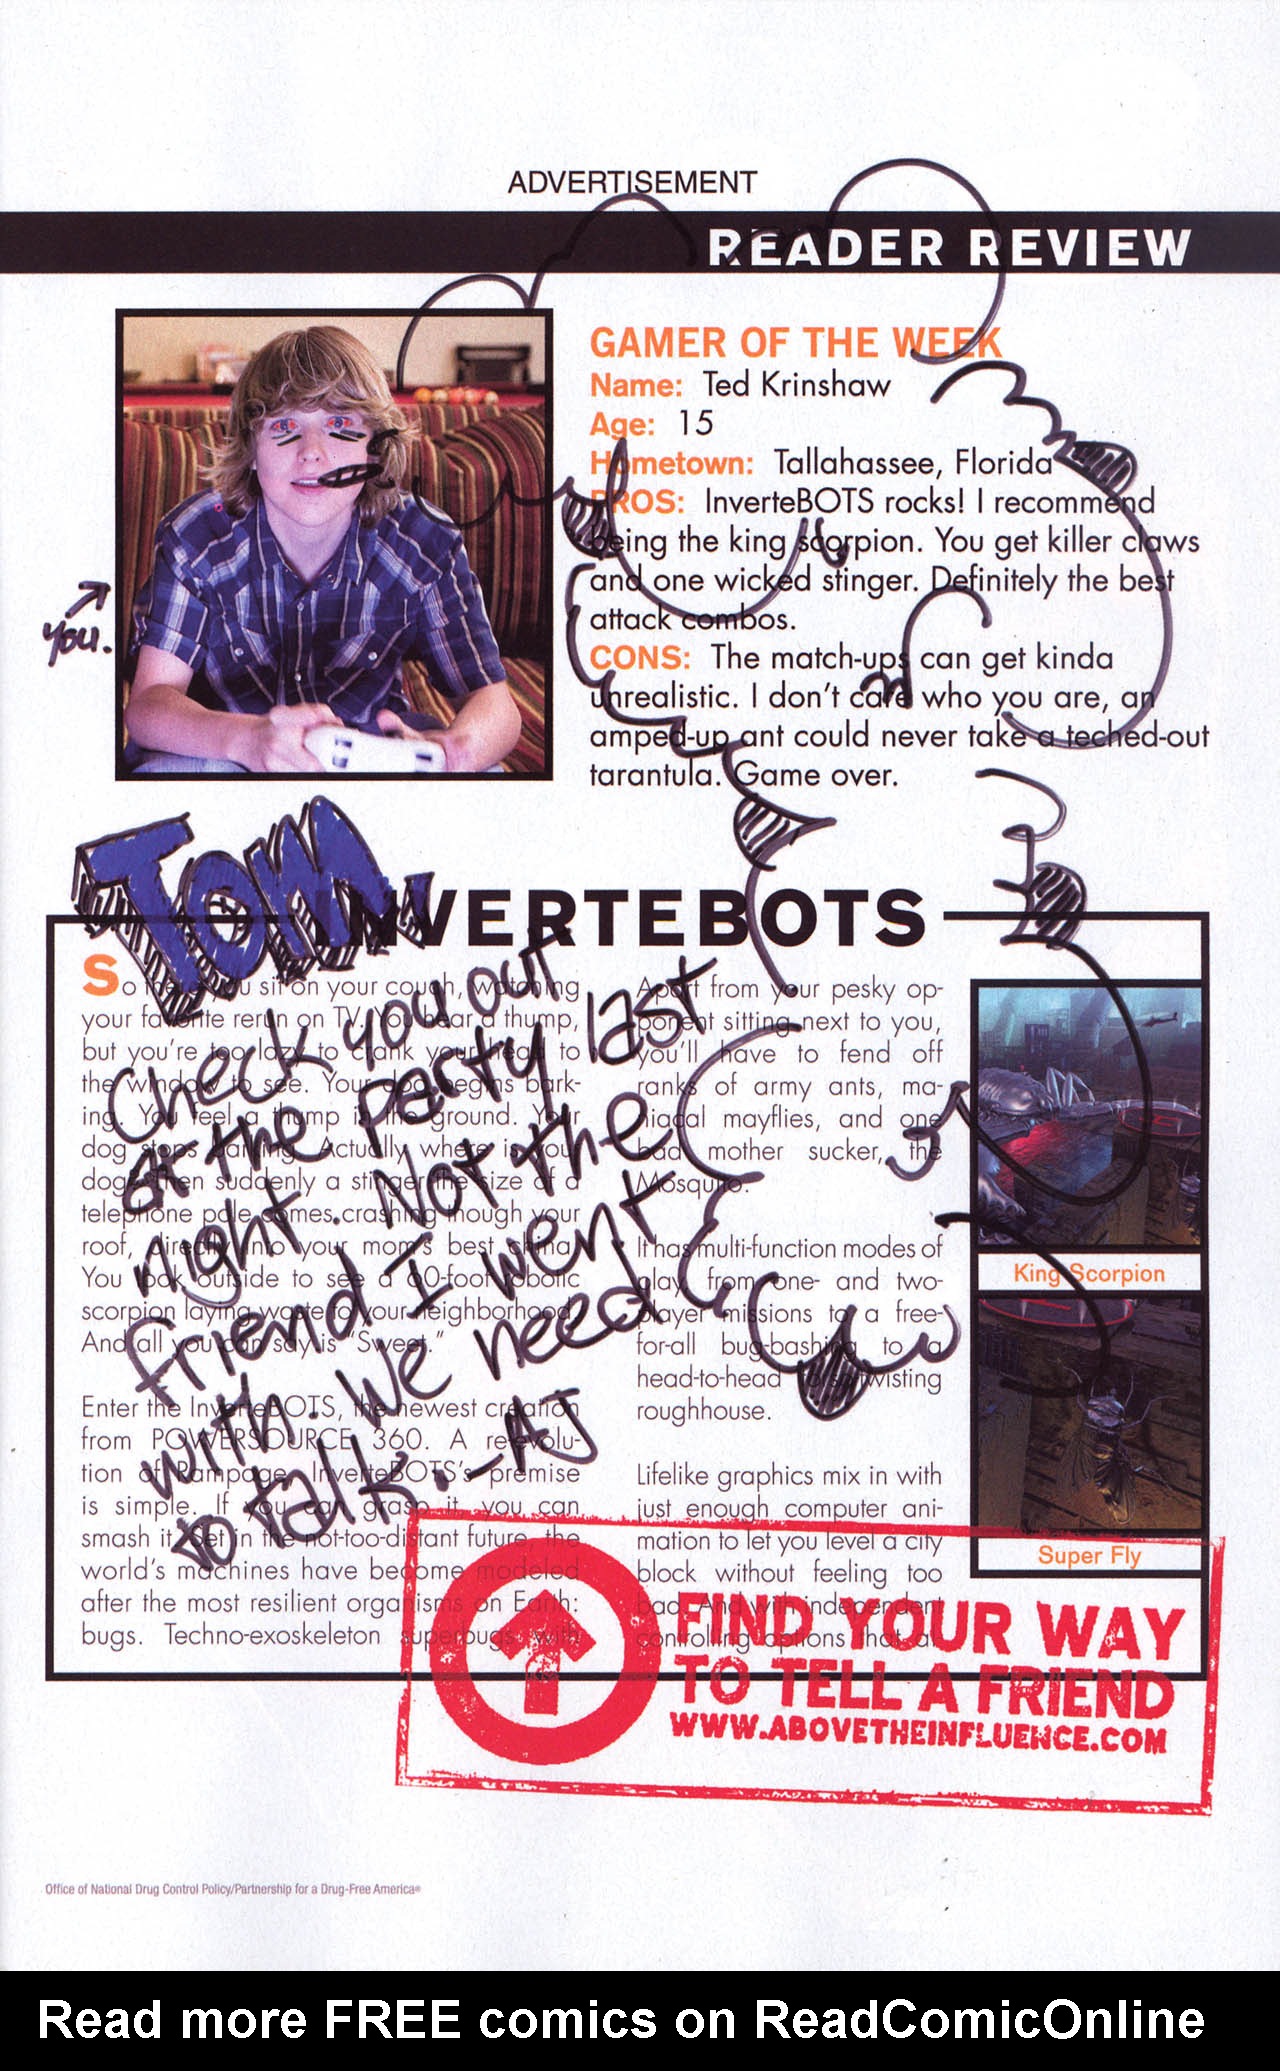 ADVERTISEMENT
READER REVIEW
GAMER OF THE WEEK
Name: Ted Krinshaw
Age: 15
Hometown: Tallahassee, Florida
PROS: InverteBOTS rocks! I recommend
being the king scorpion. You get killer claws
and one wicked stinger. Definitely the best
attack combos.
CONS: The match-ups can get kinda
unrealistic. I don't care who you are, an
amped-up ant could never take a teched-out
tarantula. Game over.
You.
TOM,
Check you out
at the party last
night. Not the
friend I went
with. We need
to talk. -AJ
INVERTEBOTS
So there you sit on your couch, watching
your favorite rerun on TV. You hear a thump,
but you're too lazy to crank your head to
the window to see. Your dog begins bark-
ing. You feel a thump in the ground. Your
dog stops barking. Actually where is your
dog? Then suddenly a stinger the size of a
telephone pole comes crashing though your
roof, directly into your mom's best china.
You look outside to see a 60-foot robotic
scorpion laying waste to your neighborhood.
And all you can say is "Sweet."
Enter the InverteBOTS, the newest creation
from POWERSOURCE 360. A re-evolu-
tion of Rampage, InverteBOTS's premise
is simple. If you can grasp it, you can
smash it. Set in the not-too-distant future, the
world's machines have become modeled
after the most resilient organisms on Earth:
bugs. Techno-exoskeleton superbugs with
Apart from your pesky op-
ponent sitting next to you,
you'll have to fend off
ranks of army ants, ma-
niacal mayflies, and one
bad mother sucker, the
Mosquito.
It has multi-function modes of
play, from one- and two-
player missions to a free-
for-all bug-bashing to a
head-to-head twisting
roughhouse.
Lifelike graphics mix in with
just enough computer ani-
mation to let you level a city
block without feeling too
bad. And with independent
controlling options that al-
King Scorpion
Super Fly
FIND YOUR WAY
TO TELL A FRIEND
WWW.ABOVETHEINFLUENCE.COM
Office of National Drug Control Policy/Partnership for a Drug-Free America®
Read more FREE comics on ReadComicOnline